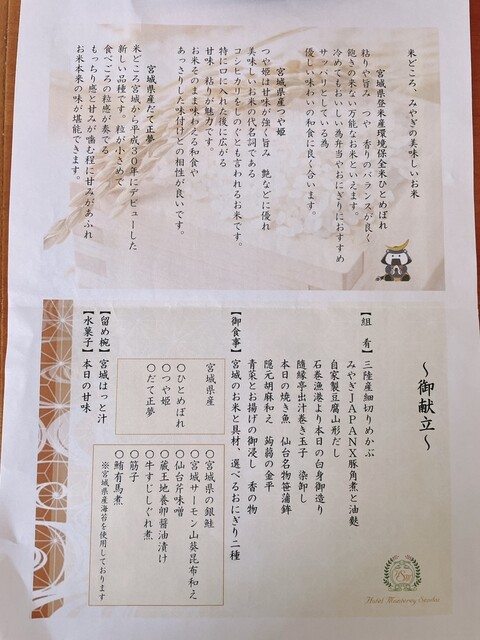 米どころ、みやぎの美味しいお米
宮城県登米産環境保全米ひとめぼれ
粘りや旨み、つや、香りのバランスが良く
飽きの来ない万能なお米といえます。
冷めてもおいしい為弁当やおにぎりにおすすめ
サッパリとしている為
優しい味わいの和食に良く合います。
宮城県産つや姫
つや姫は甘味が強く旨み、艶などに優れ
美味しいお米の代名詞である
コシヒカリをしのぐとも言われるお米です。
特に口に入れた後に広がる
甘味、粘りが魅力です。
お米そのまま味わえる和食や
あっさりした味付けとの相性が良いです。
宮城県産だて正夢
米どころ宮城から平成30年にデビューした
新しい品種です。粒が小さめで
食べごろの粒感が奏でる
もっちり感と甘みが噛む程に甘みがあふれ
お米本来の味が堪能できます。
〜御献立〜
【組 肴】三陸産細切りめかぶ
みやぎJAPANX豚角煮と油麩
自家製豆腐山形だし
石巻漁港より本日の白身御造り
随縁亭出汁巻き玉子 染卸し
本日の焼き魚 仙台名物笹蒲鉾
隠元胡麻和え 蒟蒻の金平
青菜とお揚げの御浸し 香の物
【御食事】宮城のお米と具材、選べるおにぎり二種
宮城県産
〇ひとめぼれ
〇つや姫
〇だて正夢
〇宮城県の銀鮭
〇宮城サーモン山葵昆布和え
〇仙台芹味噌
〇蔵王地養卵醤油漬け
〇牛すじしぐれ煮
〇筋子
〇鮪有馬煮
※宮城県産海苔を使用しております
【留め椀】宮城はっと汁
【水菓子】本日の甘味
Hotel Monterey Sendai